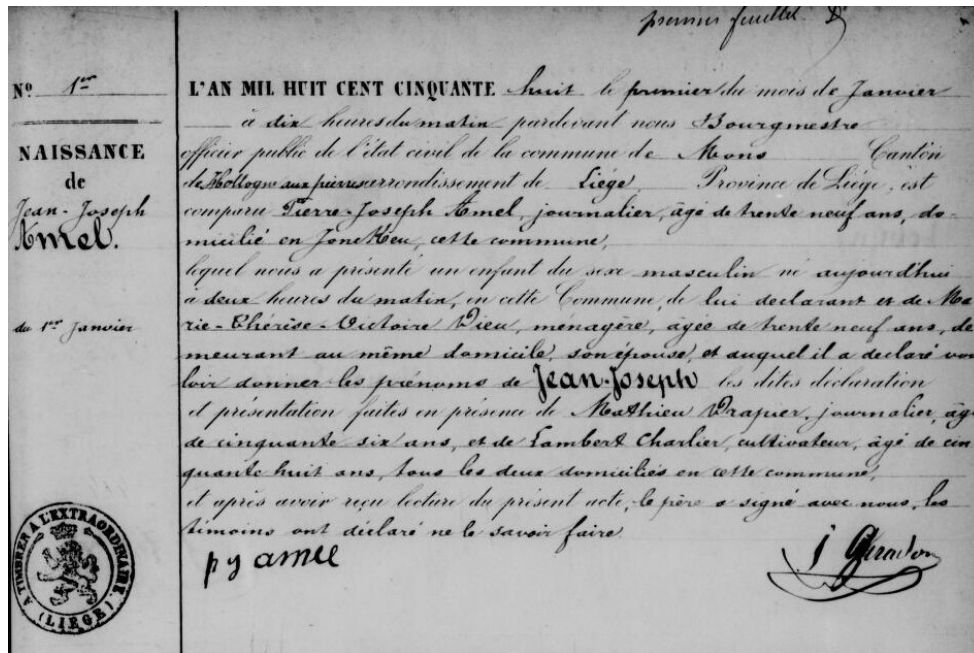 premier feuillet
Nº 1er
NAISSANCE
de
Jean-Joseph
Amel.
du 1er Janvier
L'AN MIL HUIT CENT CINQUANTE huit le premier du mois de Janvier
à dix heures du matin pardevant nous Bourgmestre
officier public de l'état civil de la commune de Mons Canton
de Hollogne aux pierres arrondissement de Liége, Province de Liége, est
comparu Pierre-Joseph Amel, journalier, âgé de trente neuf ans, do-
micilié en Joncheu, cette commune,
lequel nous a présenté un enfant du sexe masculin né aujourd'hui
à deux heures du matin, en cette Commune, de lui declarant et de Ma
rie-Thérèse-Victoire Dieu, ménagère, âgée de trente neuf ans, de
meurant au même domicile, son épouse, et auquel il a declaré vou
loir donner les prénoms de Jean-Joseph les dites déclaration
et présentation faites en présence de Mathieu Drapier, journalier, âgé
de cinquante six ans, et de Lambert Charlier, cultivateur, âgé de cin
quante huit ans, tous les deux domiciliés en cette commune,
et après avoir reçu lecture du présent acte, le père a signé avec nous, les
témoins ont déclaré ne le savoir faire.
p j amel
J Girardon
A TIMBRER A L'EXTRAORDINAIRE
(LIÉGE)